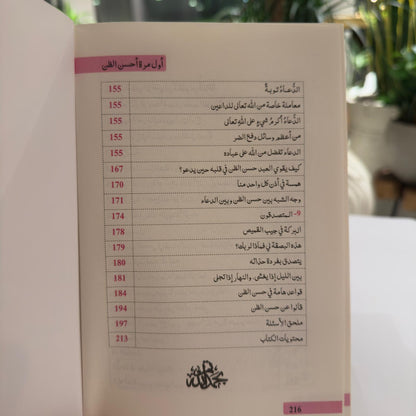 أول مرة أحسن الظن
الدُّعـاءُ تـوبـةٌ 155
معاملة خاصة من الله تعالى للداعين 155
الدُّعاءُ أكرمُ شيءٍ على الله تعالى 155
من أعظم وسائل دفع الضر 155
الدعاء تفضل من الله على عباده 155
كيف يقوي العبد حسن الظن في قلبه حين يدعو؟ 167
همسة في أذن كل واحد منا 170
وجه الشبه بين حسن الظن وبين الدعاء 171
9- المتصدقون 174
البركة في جيب القميص 178
هذه البصقة في فماذا لربك؟ 179
يتصدق بفردة حذائه 180
بين الليل إذا يغشى. والنهار إذا تجلى 181
قواعد هامة في حسن الظن 184
قالوا عن حسن الظن 194
ملحق الأسئلة 197
محتويات الكتاب 213
216